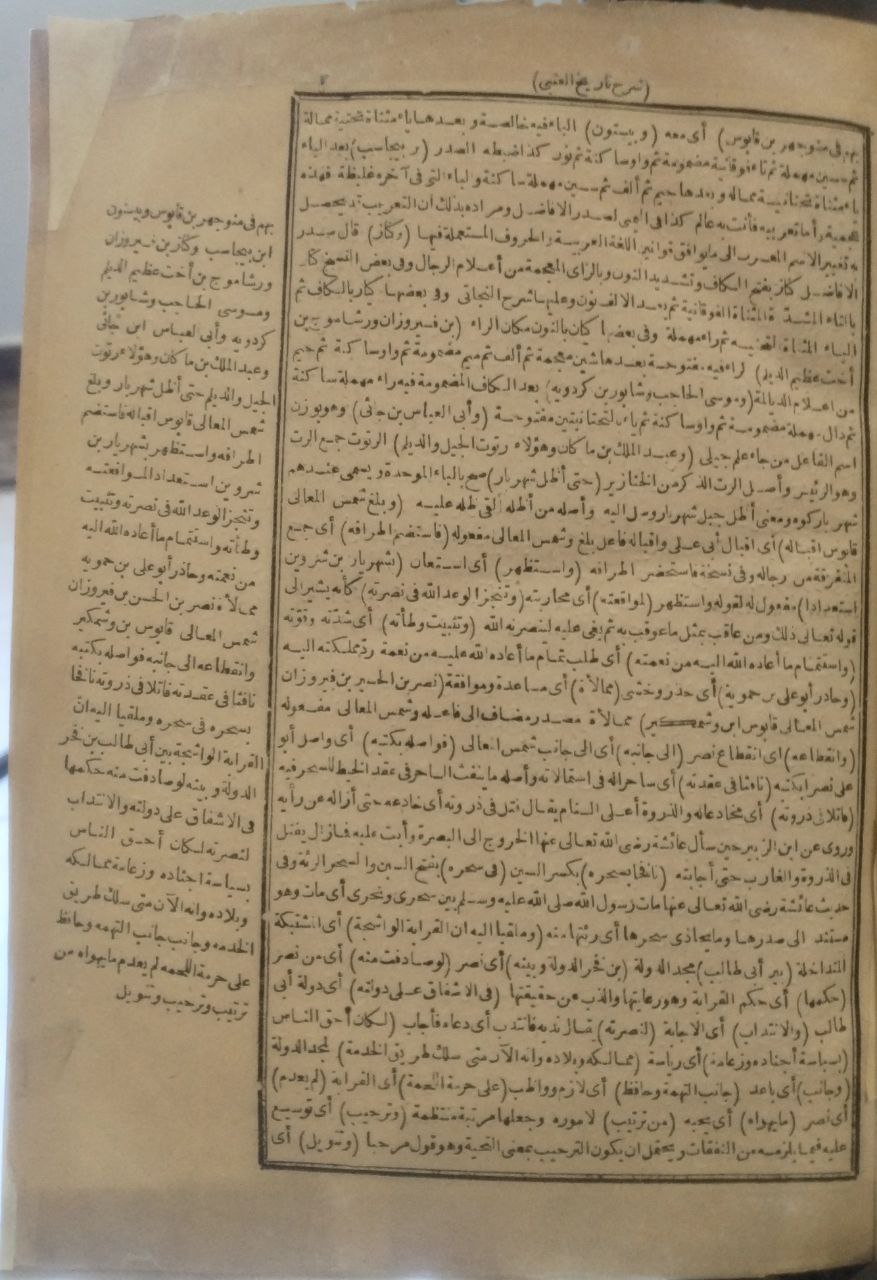 (شرح تاريخ العتبى)
٢
بهم فى منوجهر بن قابوس) أى معه (وبيستون) الباء فيه خالصة وبعدها ياء مثناة تحتية ممالة
ثم سين مهملة ثم تاء فوقانية مضمومة ثم واو ساكنة ثم نون كذا ضبطه الصدر بعد الباء
ياء مثناة تحتانية ممالة وبعدها جيم ثم ألف ثم سين مهملة ساكنة والباء التى فى آخره غليظة فهذه
عجمية وأما تعريبه فأنت به عالم كذا فى اليمنى لصدر الافاضل ومراده بذلك ان التعريب قد يحصل
به تغيير الاسم المعرب الى ما يوافق قوانين اللغة العربية والحروف المستعملة فيها (وكناز) قال صدر
الافاضل كناز بفتح الكاف وتشديد النون وبالزاى المعجمة من أعلام الرجال وفى بعض النسخ
بالتاء المثناة الفوقانية ثم بعد الالف نون وعليها شرح النجاتى وفى بعضها كيار بالكاف ثم
الياء المثناة التحتية ثم راء مهملة وفى بعضها كيان بالنون مكان الراء (بن فيروزان ورشاموج بن
أخت عظيم الديلم) الراء فيه مفتوحة بعدها شين معجمة ثم ألف ثم ميم مضمومة ثم واو ساكنة ثم جيم
من اعلام الديالمة (وموسى الحاجب وشابور بن كردويه) بعد الكاف المضمومة فيه راء مهملة ساكنة
ثم دال مهملة مضمومة ثم واو ساكنة ثم ياء بالتحتانيتين مفتوحة (وأبى العباس بن جائى) وهو بوزن
اسم الفاعل من جاء علم جيلى (وعبد الملك بن ماكان وهؤلاء رتوت الجيل والديلم) الرتوت جمع الرت
وهو الرئيس وأصل الرت الذكر من الخنازير (حتى أظل شهريار) صح بالباء الموحدة ويسمى عندهم
شهريار كوه ومعنى أظل جبل شهريار وصل اليه وأصله من أظله ألقى ظله عليه (وبلغ شمس المعالى
قابوس اقباله) أى اقبال أبى على واقباله فاعل بلغ وشمس المعالى مفعوله (فاستضم اطرافه) أى جمع
المتفرقة من رجاله وفى نسخة فاستحضر اطرافه (واستظهر) أى استعان (بشهريار بن شروين
استعدادا) مفعول له لقوله واستظهر (لمواقعته) أى محاربته (وتنجز الوعد الله فى نصرته) كأنه يشير الى
قوله تعالى ذلك ومن عاقب بمثل ما عوقب به ثم بغى عليه لينصرنه الله (وتثبيت وطأته) أى شدته وقوته
(واستتمام ما أعاده الله اليه من نعمته) أى طلب تمام ما أعاده الله عليه من نعمة رد مملكته اليه
(وحاذر أبو على بن حموية) أى حذر وخشى (ممالأة) أى مساعدة وموافقة (نصر بن الحسن بن فيروزان
شمس المعالى قابوس ابن وشمكير) ممالأة مصدر مضاف الى فاعله وشمس المعالى مفعوله
(وانقطاعه) أى انقطاع نصر (الى جانبه) أى الى جانب شمس المعالى (فواصله بكتبه) أى واصل أبو
على نصرا بكتبه (نافثا فى عقدته) أى ساحرا له فى استمالاته وأصله ما ينفث الساحر فى عقد الخيط للسحر فيه
(فاتلا فى ذروته) أى مخادعا له والذروة أعلى السنام يقال فتل فى ذروته أى خادعه حتى أزاله عن رأيه
وروى عن ابن الزبير حين سأل عائشة رضى الله تعالى عنها الخروج الى البصرة وأبت عليه فما زال يفتل
فى الذروة والغارب حتى أجابته (نافخا بسحره) بكسر السين (فى سحره) بفتح السين والسحر الرئة وفى
حديث عائشة رضى الله تعالى عنها مات رسول الله صلى الله عليه وسلم بين سحرى ونحرى أى مات وهو
مستند الى صدرها وما يحاذى سحرها أى رئتها منه (وملقيا اليه ان القرابة الواشجة) أى المشتبكة
المتداخلة (بين أبى طالب) مجد الدولة (بن فخر الدولة وبينه) أى نصر (لو صادفت منه) أى من نصر
(حكمها) أى حكم القرابة وهو رعايتها والذب عن حقيقتها (فى الاشفاق على دولته) أى دولة أبى
طالب (والانتداب) أى الاجابة (لنصرته) يقال ندبه فانتدب أى دعاه فأجاب (لكان أحق الناس
بسياسة أجناده وزعامة) أى رياسة (ممالكه وبلاده وانه الآن متى سلك طريق الخدمة) لمجد الدولة
(وجانب) أى باعد (جانب التهمة وحافظ) أى لازم وواظب (على حرمة اللحمة) أى القرابة (لم يعدم)
أى نصر (ما يهواه) أى يحبه (من ترتيب) لاموره وجعلها مرتبة منتظمة (وترحيب) أى توسيع
عليه فيما يلزمه من النفقات ويحتمل ان يكون الترحيب بمعنى التحية وهو قول مرحبا (وتنويل) أى
بهم فى منوجهر بن قابوس وبيستون
ابن بيجاسب وكناز بن فيروزان
ورشاموج بن أخت عظيم الديلم
وموسى الحاجب وشابور بن
كردويه وأبى العباس ابن جائى
وعبد الملك بن ماكان وهؤلاء رتوت
الجيل والديلم حتى أظل شهريار وبلغ
شمس المعالى قابوس اقباله فاستضم
اطرافه واستظهر بشهريار بن
شروين استعدادا لمواقعته
وتنجز الوعد الله فى نصرته وتثبيت
وطأته واستتمام ما أعاده الله اليه
من نعمته وحاذر أبو على بن حمويه
ممالأة نصر بن الحسن بن فيروزان
شمس المعالى قابوس بن وشمكير
وانقطاعه الى جانبه فواصله بكتبه
نافثا فى عقدته فاتلا فى ذروته نافخا
بسحره فى سحره وملقيا اليه ان
القرابة الواشجة بين أبى طالب بن فخر
الدولة وبينه لو صادفت منه حكمها
فى الاشفاق على دولته والانتداب
لنصرته لكان أحق الناس
بسياسة اجناده وزعامة ممالكه
وبلاده وانه الآن متى سلك طريق
الخدمه وجانب جانب التهمه وحافظ
على حرمة اللحمه لم يعدم ما يهواه من
ترتيب وترحيب وتنويل